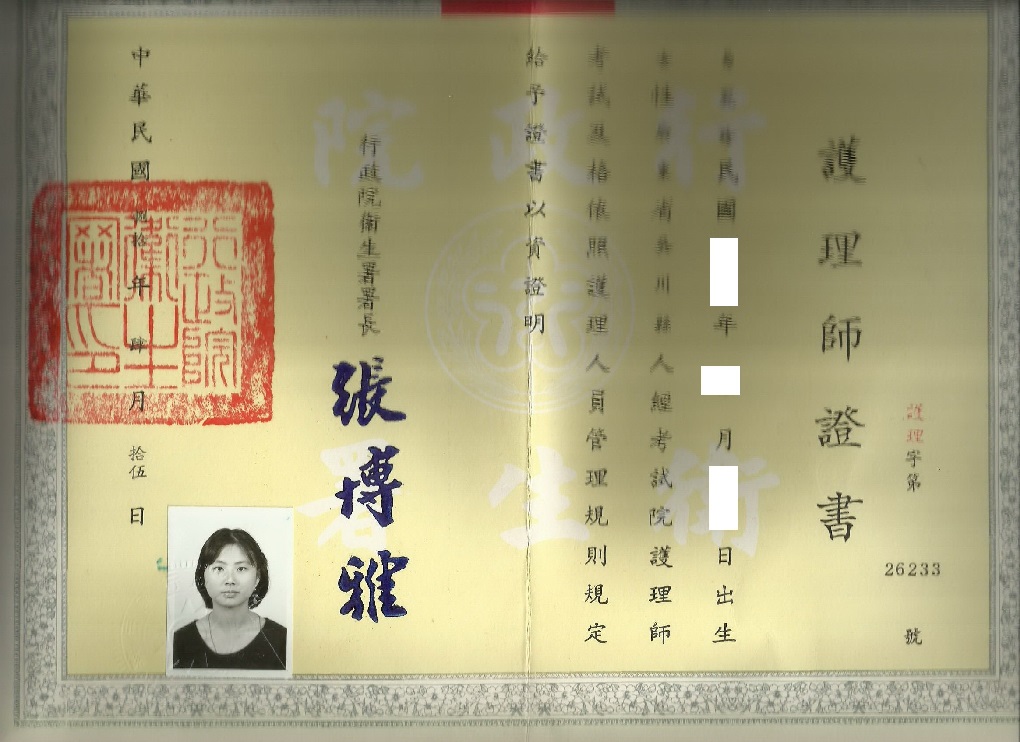 護理字第 26233 號
護理師證書
民國 年 月 日出生
省吳川縣人經考試院護理師
考試及格依照護理人員管理規則規定
給予證書以資證明
行政院衛生署署長 張博雅
中華民國捌拾年肆月拾伍日
行政院衛生署印
行政院
衛生署